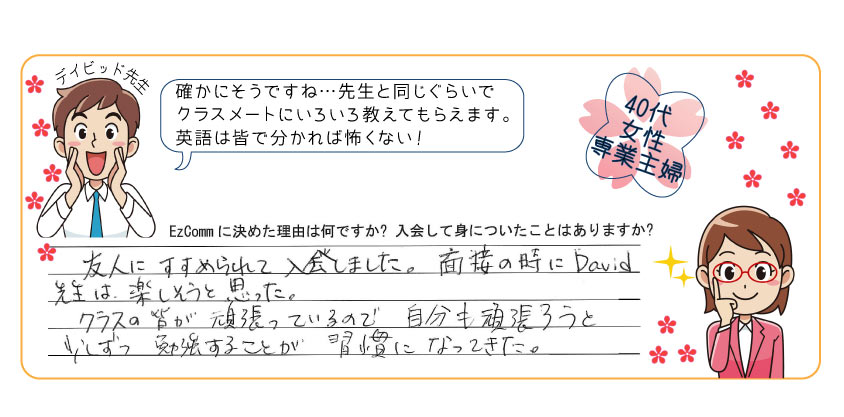 デイビッド先生
確かにそうですね…先生と同じぐらいで
クラスメートにいろいろ教えてもらえます。
英語は皆で分かれば怖くない！
40代
女性
専業主婦
EzCommに決めた理由は何ですか？入会して身についたことはありますか？
友人にすすめられて入会しました。面接の時にDavid
先生は、楽しそうと思った。
クラスの皆が頑張っているので自分も頑張ろうと
少しずつ勉強することが習慣になってきた。